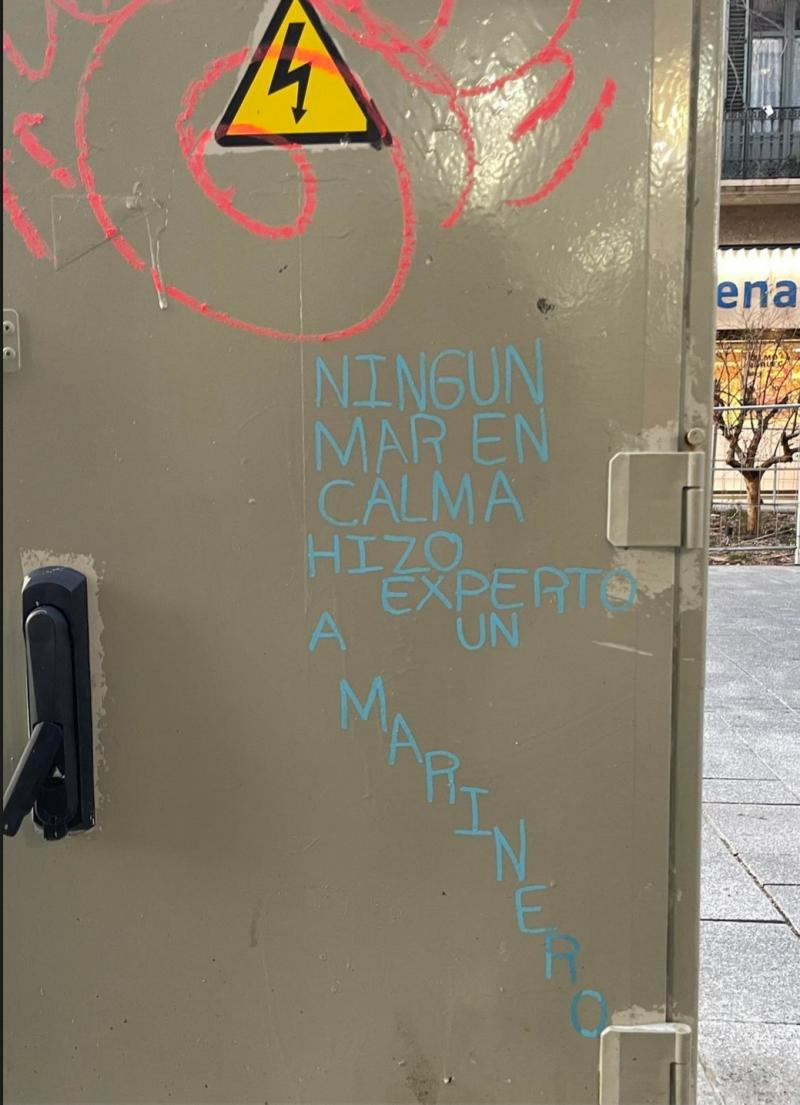 NINGUN
MAR EN
CALMA
HIZO
EXPERTO
A UN
MARINERO
ena